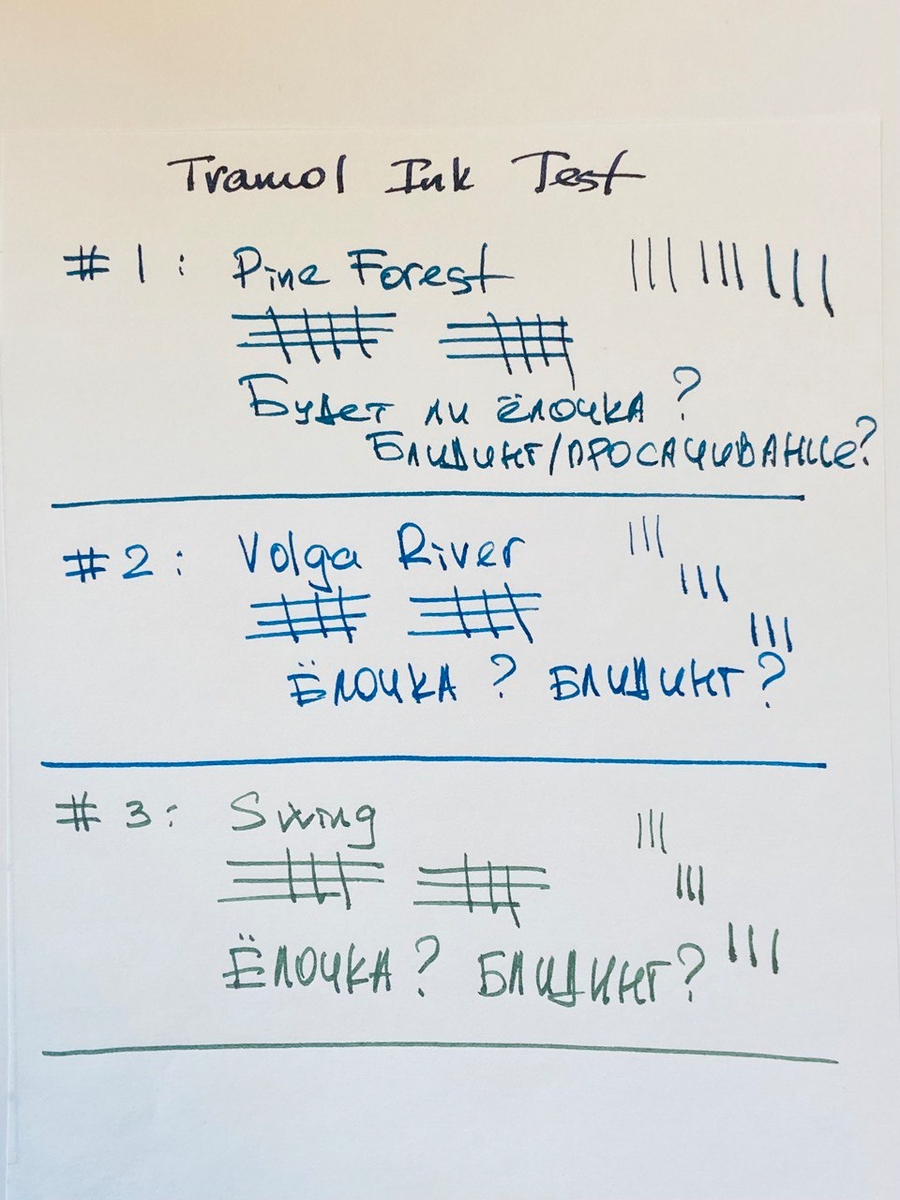 Tramol Ink Test
# 1 : Pine Forest
Будет ли ёлочка ?
Блидинг/просачивание?
# 2 : Volga River
Ёлочка ? Блидинг ?
# 3 : Swing
Ёлочка ? Блидинг ?